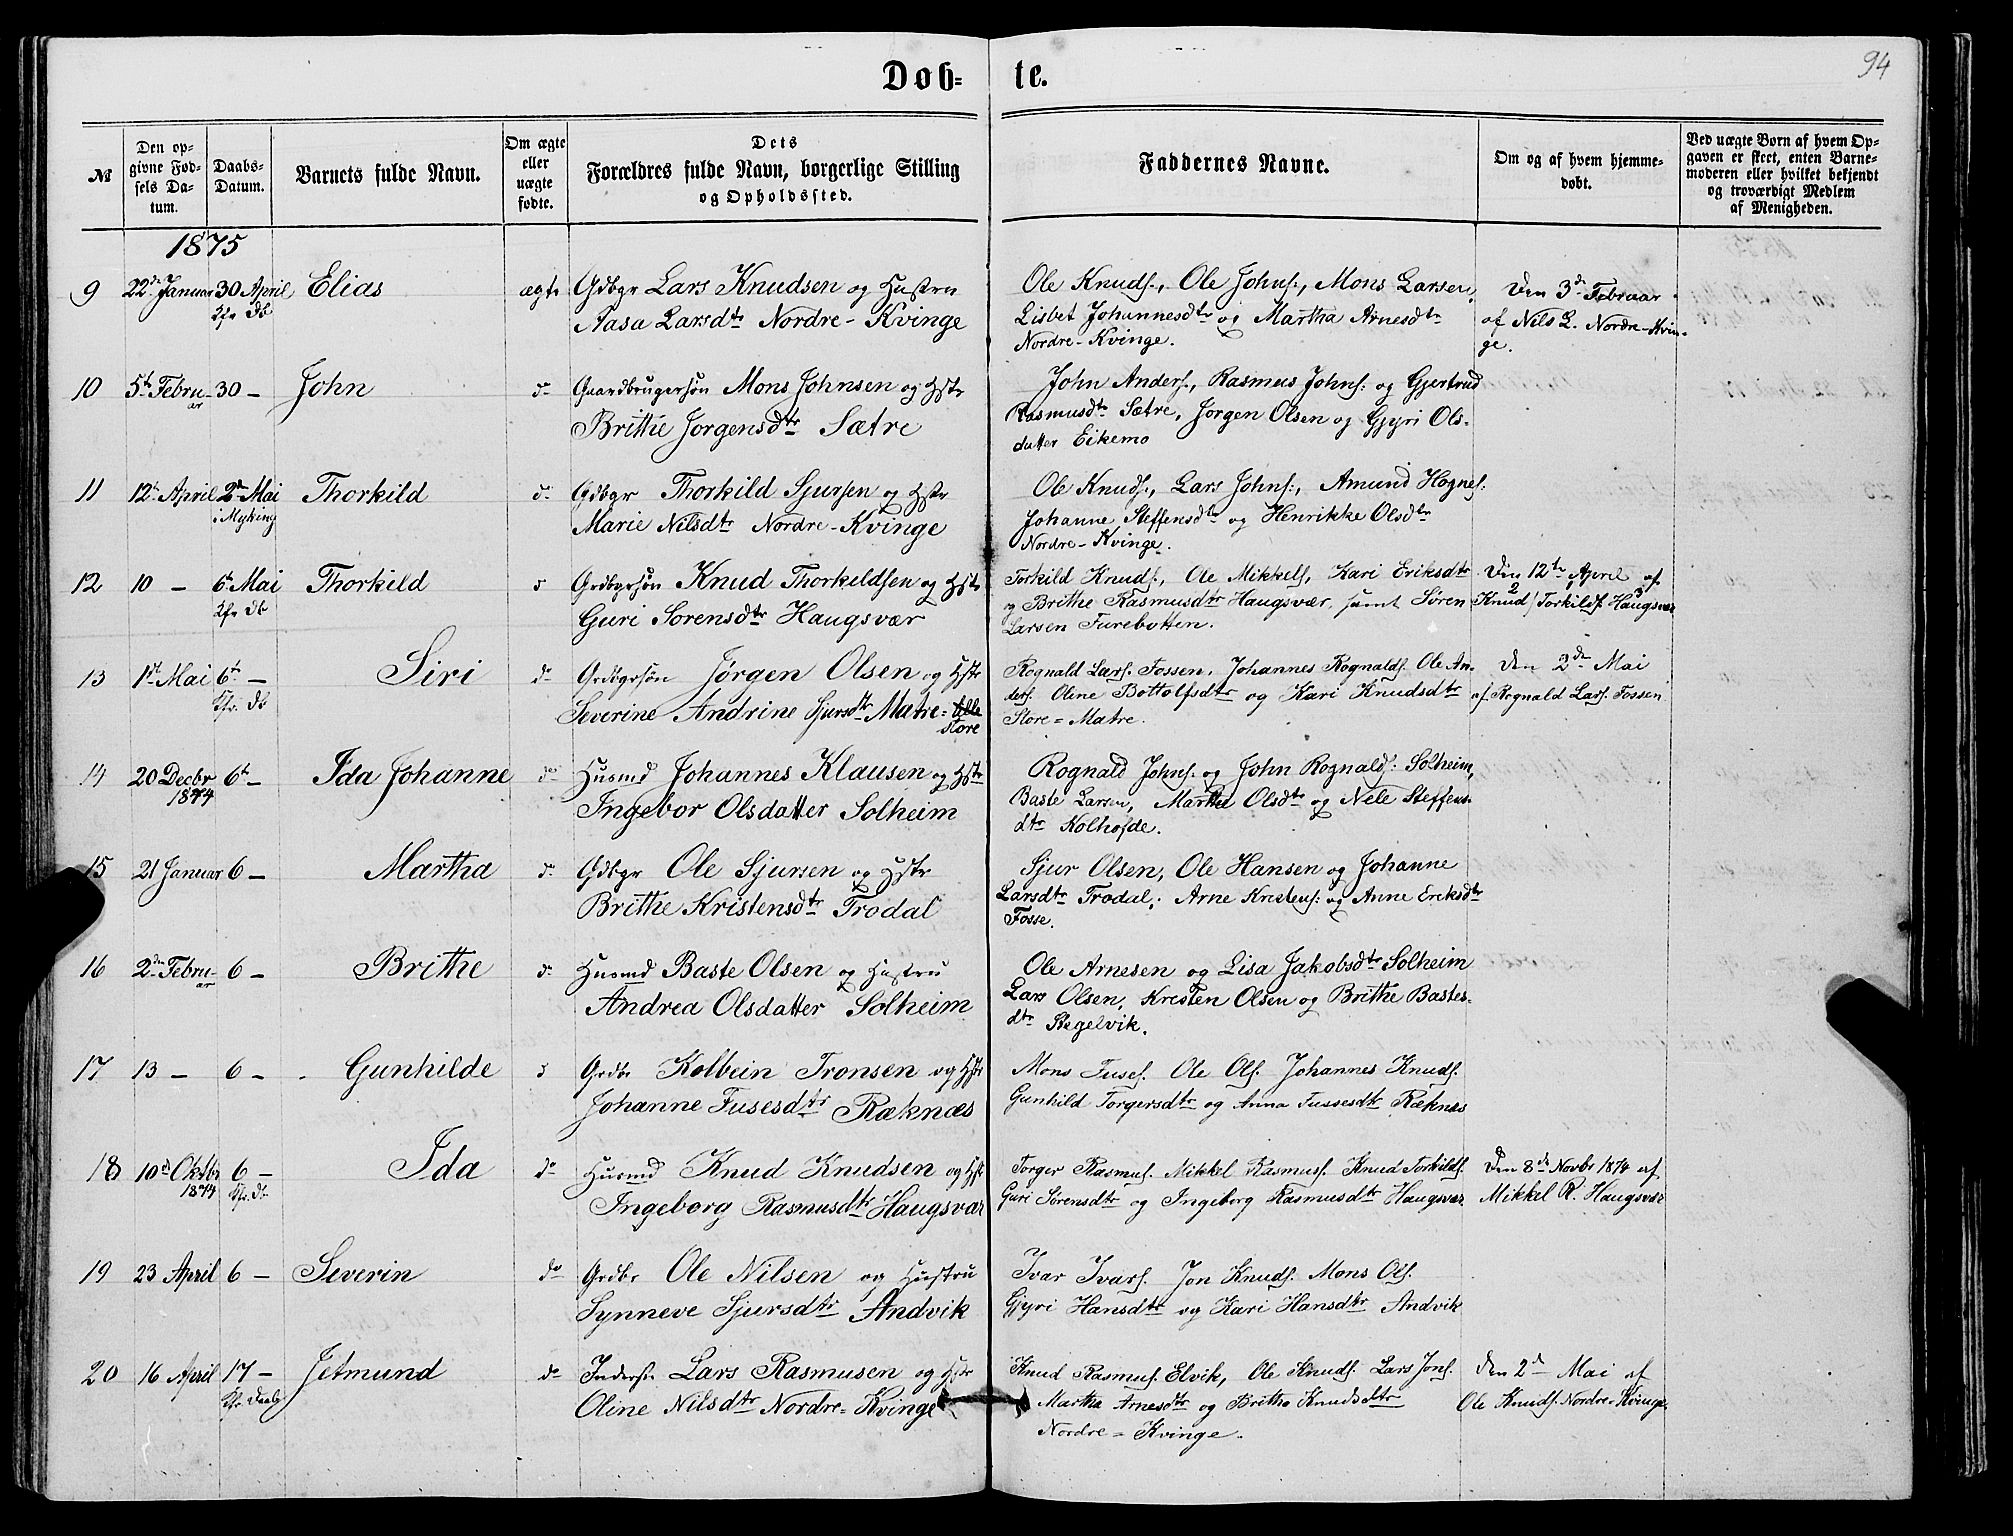 Døb- te.
94
№
Den op-
givne Fød-
sels Da-
tum.
Daabs-
Datum.
Barnets fulde Navn.
Om ægte
eller
uægte
fødte.
Dets
Forældres fulde Navn, borgerlige Stilling
og Opholdssted.
Faddernes Navne.
Om og af hvem hjemme-
døbt.
Ved uægte Børn af hvem Op-
gaven er skeet, enten Barne-
moderen eller hvilket bekjendt
og troværdigt Medlem
af Menigheden.
1875
9 22de Januar 30 April Elias ægte Gdbgr Lars Knudsen og Hustru
Kfr Db
Aasa Larsdtr Nordre-Kvinge
Ole Knuds., Ole Johns., Mons Larsen,
Lisbet Johannesdtr og Martha Arnesdtr
Nordre-Kvinge.
Den 3de Februar
af Nils L. Nordre-Kvin-
ge.
10 5te Febru- 30 - John do Gaardbrugersøn Mons Johnsen og Hstr
ar
Brithe Jørgensdtr Sætre
John Anders., Rasmus Johns: og Gjertrud
Rasmusdtr Sætre, Jørgen Olsen og Gjyri Ols-
datter Eikemo
11 12te April 2den Mai Thorkild do Gdbgr Thorkild Sjursen og Hstr
i Myking
Marie Nilsdtr Nordre-Kvinge
Ole Knuds., Lars Johns:, Amund Hognes.
Johanne Steffensdtr og Henrikke Olsdtr
Nordre-Kvinge.
12 10 - 6te Mai Thorkild do Grdbgrsøn Knud Thorkeldsen og Hstr
Kfr Db
Guri Sørensdtr Haugsvær
Torkild Knuds., Ole Mikkels, Kari Eriksdtr
og Brithe Rasmusdtr Haugsvær samt Søren
Larsen Furebotten.
Den 12te April af
Knud Torkilds. Haugsvær
13 1ste Mai 6te - Siri do Grdbgrsøn Jørgen Olsen og Hstr
Kfr. Db
Severine Andrine Sjursdtr Matre-
store
Rognald Lars. Fossen, Johannes Rognalds. Ole An-
ders. Oline Bottolfsdtr og Kari Knudsdtr
Store-Matre.
Den 2den Mai
af Rognald Lars. Fossen
14 20 Decbr 6te - Ida Johanne do Husmd Johannes Klausen og Hstr
1874
Ingebor Olsdatter Solheim
Rognald Johns. og John Rognalds: Solheim,
Baste Larsen, Marthe Olsdtr og Nele Steffens-
dtr Kolhofde.
15 21 Januar 6 - Martha do Gdbgr Ole Sjursen og Hstr
Brithe Kristensdtr Trodal
Sjur Olsen, Ole Hansen og Johanne
Larsdtr Trodal, Arne Kristens: og Anne Eriksdtr
Fosse.
16 2den Febru- 6 - Brithe do Husmd Baste Olsen og Hustru
ar
Andrea Olsdatter Solheim
Ole Arnesen og Lisa Jakobsdtr Solheim
Lars Olsen, Kresten Olsen og Brithe Bastes-
dtr Stegelvik.
17 13 - 6 - Gunhilde do Grdbr Kolbein Tronsen og Hstr
Johanne Fusesdtr Ræknæs
Mons Fuses. Ole Ols. Johannes Knuds.
Gunhild Torgersdtr og Anna Fussesdtr Ræknæs
18 10de Oktbr 6 - Ida do Husmd Knud Knudsen og Hstr
1874 Kfr. Db
Ingeborg Rasmusdtr Haugsvær
Torger Rasmus. Mikkel Rasmus. Knud Torkilds.
Guri Sørensdtr og Ingeborg Rasmusdtr Haugsvær
Den 8de Novbr 1874 af
Mikkel R. Haugsvær
19 23 April 6 - Severin do Grdbr Ole Nilsen og Hustru
Synneve Sjursdtr Andvik
Ivar Ivars. Jon Knuds. Mons Ols.
Gjyri Hansdtr og Kari Hansdtr Andvik
20 16 April 17 - Jetmund do Inderst Lars Rasmusen og Hstr
Kfr Daab
Oline Nilsdtr Nordre-Kvinge
Knud Rasmus. Elvik, Ole Knuds. Lars Jons.
Martha Arnesdtr og Brithe Knudsdtr
Nordre-Kvinge.
Den 2d Mai af
Ole Knuds. Nordre-Kvinge